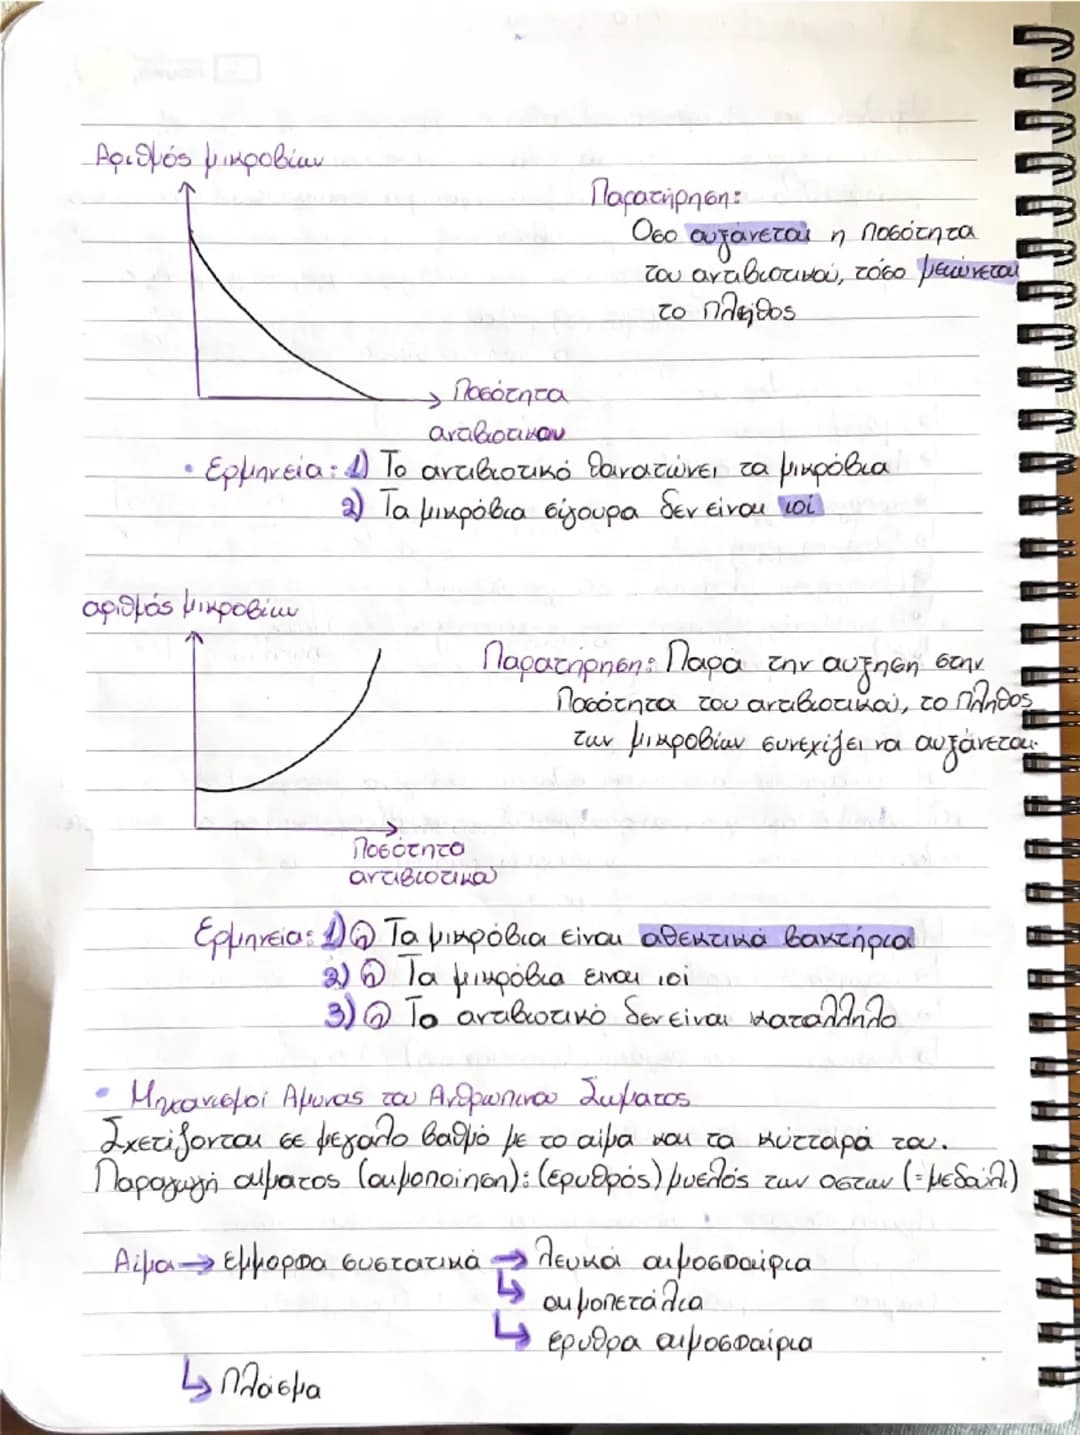 Αριθμός μικροβίων
Παρατήρηση:
Οσο αυξάνεται η ποσότητα
του αντιβιοτικού, τόσο μειώνεται
το πλήθος
Ποσότητα
αντιβιοτικου
• Ερμηνεία: 1) Το αντιβιοτικό θανατώνει τα μικρόβια
2) Τα μικρόβια σίγουρα δεν είναι ιοί
αριθμός μικροβίων
Παρατήρηση: Παρά την αυξηση στην
ποσότητα του αντιβιοτικού, το πλήθος
των μικροβίων συνεχίζει να αυξάνεται.
Ποσότητα
αντιβιοτικού
Ερμηνεία: 1) ή Τα μικρόβια είναι αθεκτικά βακτήρια
2) ή Τα μικρόβια ειναι ιοί
3) ή Το αντιβιοτικό δεν είναι καταλληλο
• Μηχανισμοί Αμυνας του Ανθρωπινου Σωματος
Σχετίζονται σε μεγαλο βαθμό με το αίμα και τα κύτταρά του.
Παραγωγή αίματος (αιμοποίηση): (ερυθρός) μυελός των οστων (=μεδούλι)
Αίμα → εμμορφα συστατικά → λευκά αιμοσφαίρια
↳ αιμοπετάλια
↳ ερυθρα αιμοσφαίρια
↳ πλάσμα